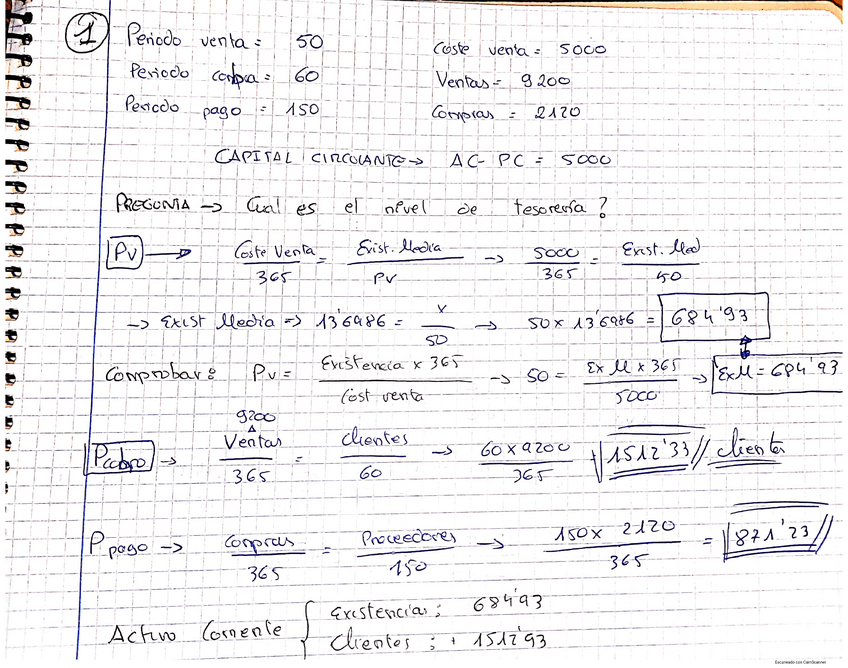 1 Periodo venta = 50 Coste venta = 5000
Periodo compra = 60 Ventas = 9200
Periodo pago = 150 Compras = 2120
CAPITAL CIRCULANTE → AC - PC = 5000
PREGUNTA → Cual es el nivel de tesorería?
Pv → Coste Venta / 365 = Exist. Media / PV → 5000 / 365 = Exist. Med / 50
→ Exist Media => 13'6986 = x / 50 → 50 x 13'6986 = 684'93
Comprobar: Pv = Existencia x 365 / Cost venta → 50 = Ex M x 365 / 5000 → ExM = 684'93
9200
Pcobro → Ventas / 365 = clientes / 60 → 60 x 9200 / 365 1512'33 // clientes
Ppago → Compras / 365 = Proveedores / 150 → 150 x 2120 / 365 = 871'23 //
Activo Corriente { Existencias: 684'93
Clientes: + 1512'93
Escaneado con CamScanner